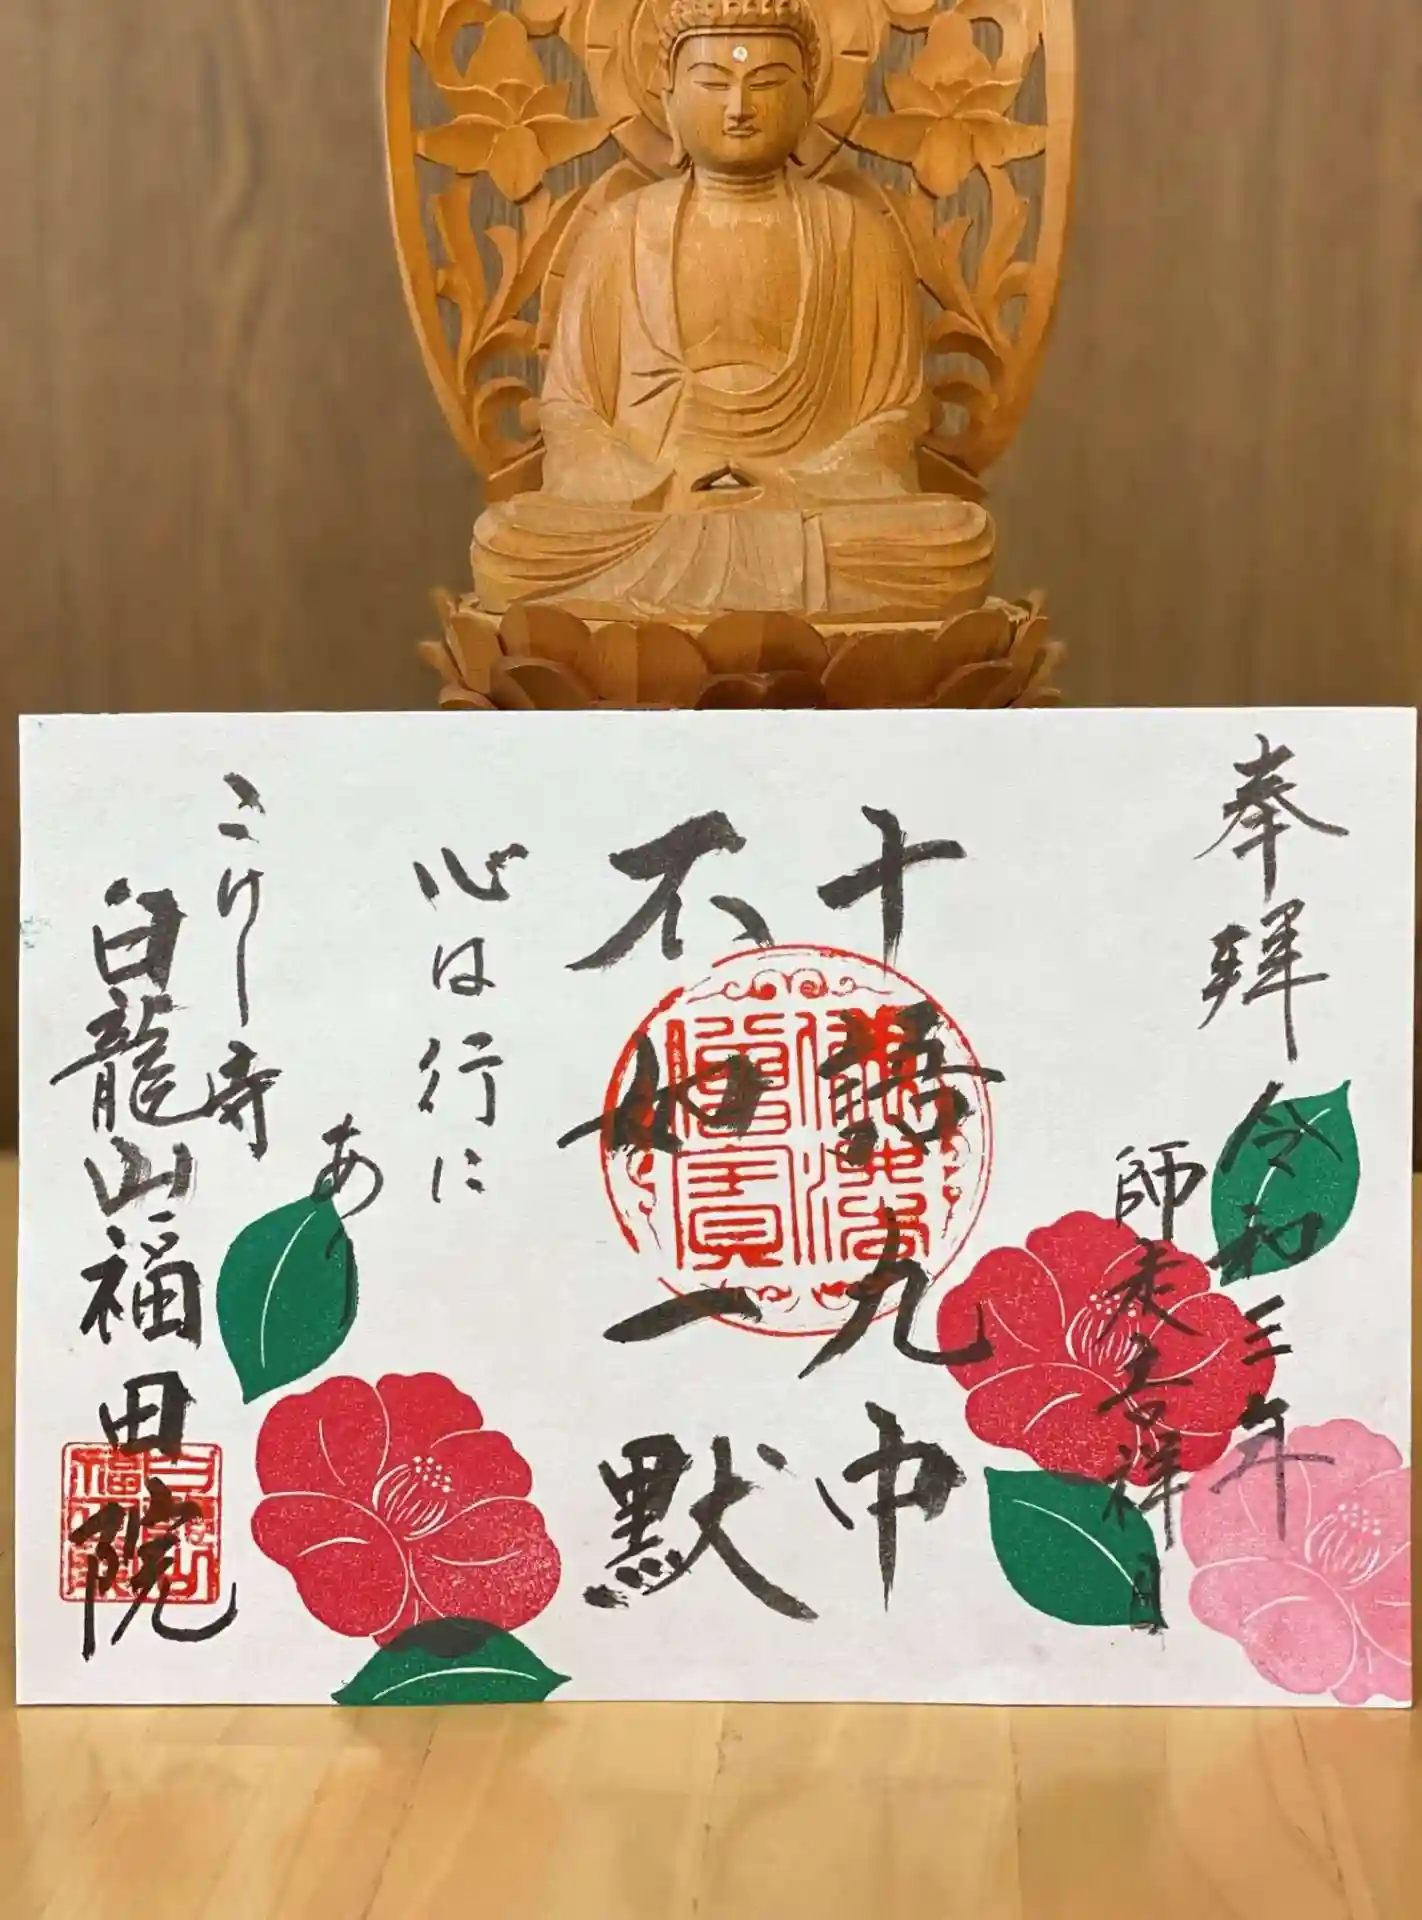 奉拜
令和三年
師走吉祥日
十語九中
不如一默
心は行に
あり
こけし寺
白龍山福田院
佛法僧寳